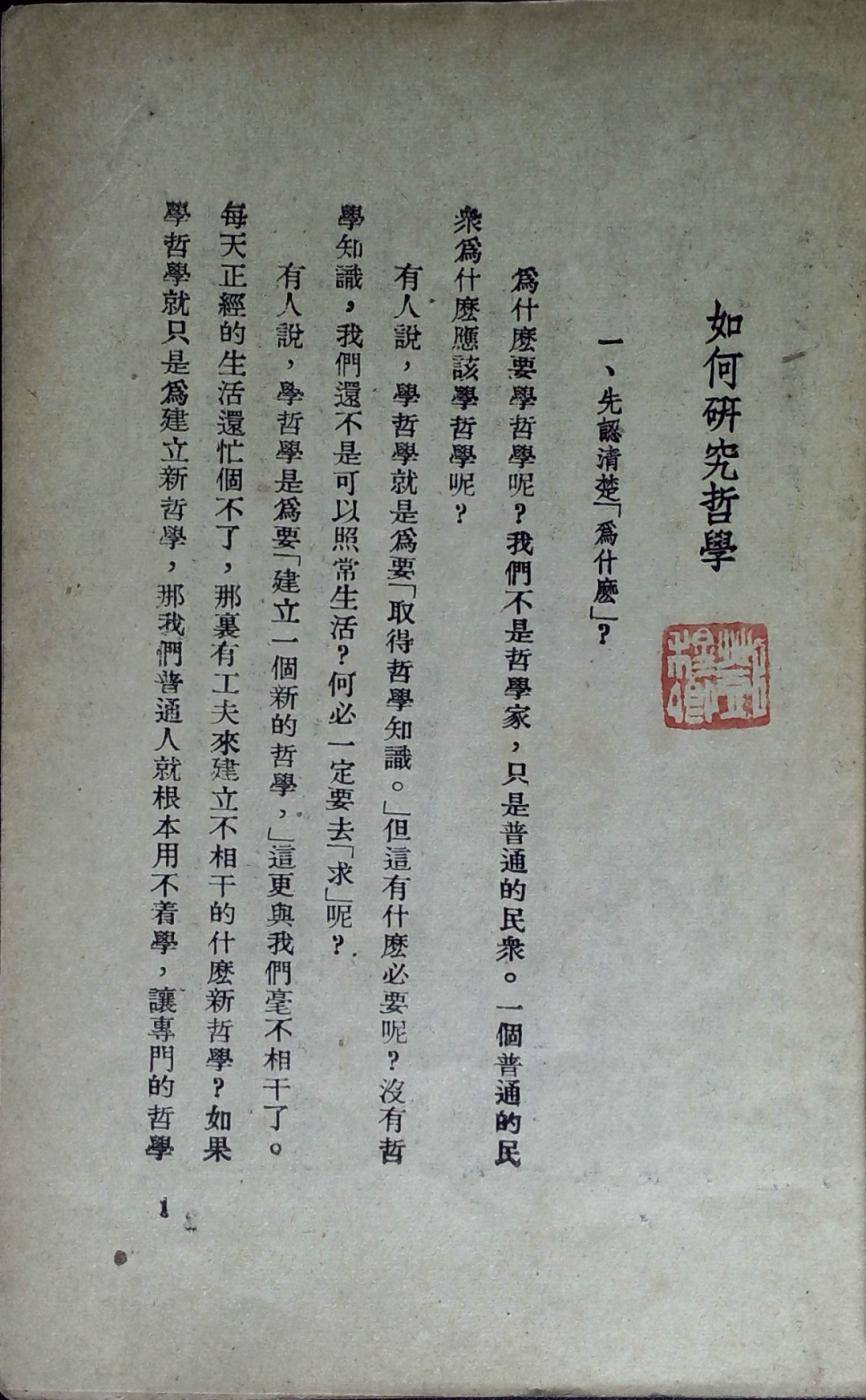 如何研究哲學
一、先認清楚「爲什麽」?
爲什麽要學哲學呢?我們不是哲學家,只是普通的民衆。一個普通的民
衆爲什麽應該學哲學呢?
有人說,學哲學就是爲要「取得哲學知識。」但這有什麽必要呢?沒有哲
學知識,我們還不是可以照常生活?何必一定要去「求」呢?
有人說,學哲學是爲要「建立一個新的哲學,」這更與我們毫不相干了。
每天正經的生活還忙個不了,那裏有工夫來建立不相干的什麽新哲學?如果
學哲學就只是爲建立新哲學,那我們普通人就根本用不着學,讓專門的哲學
1